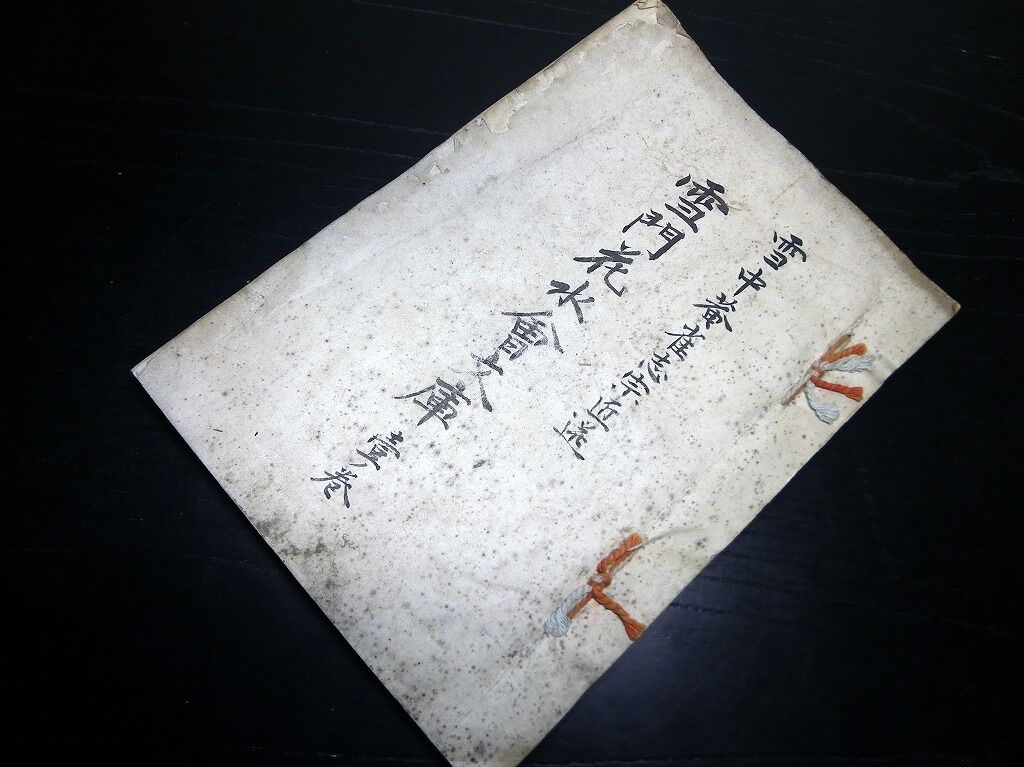 雪中菴雀志宗匠選
雪門花水會文庫 壹卷